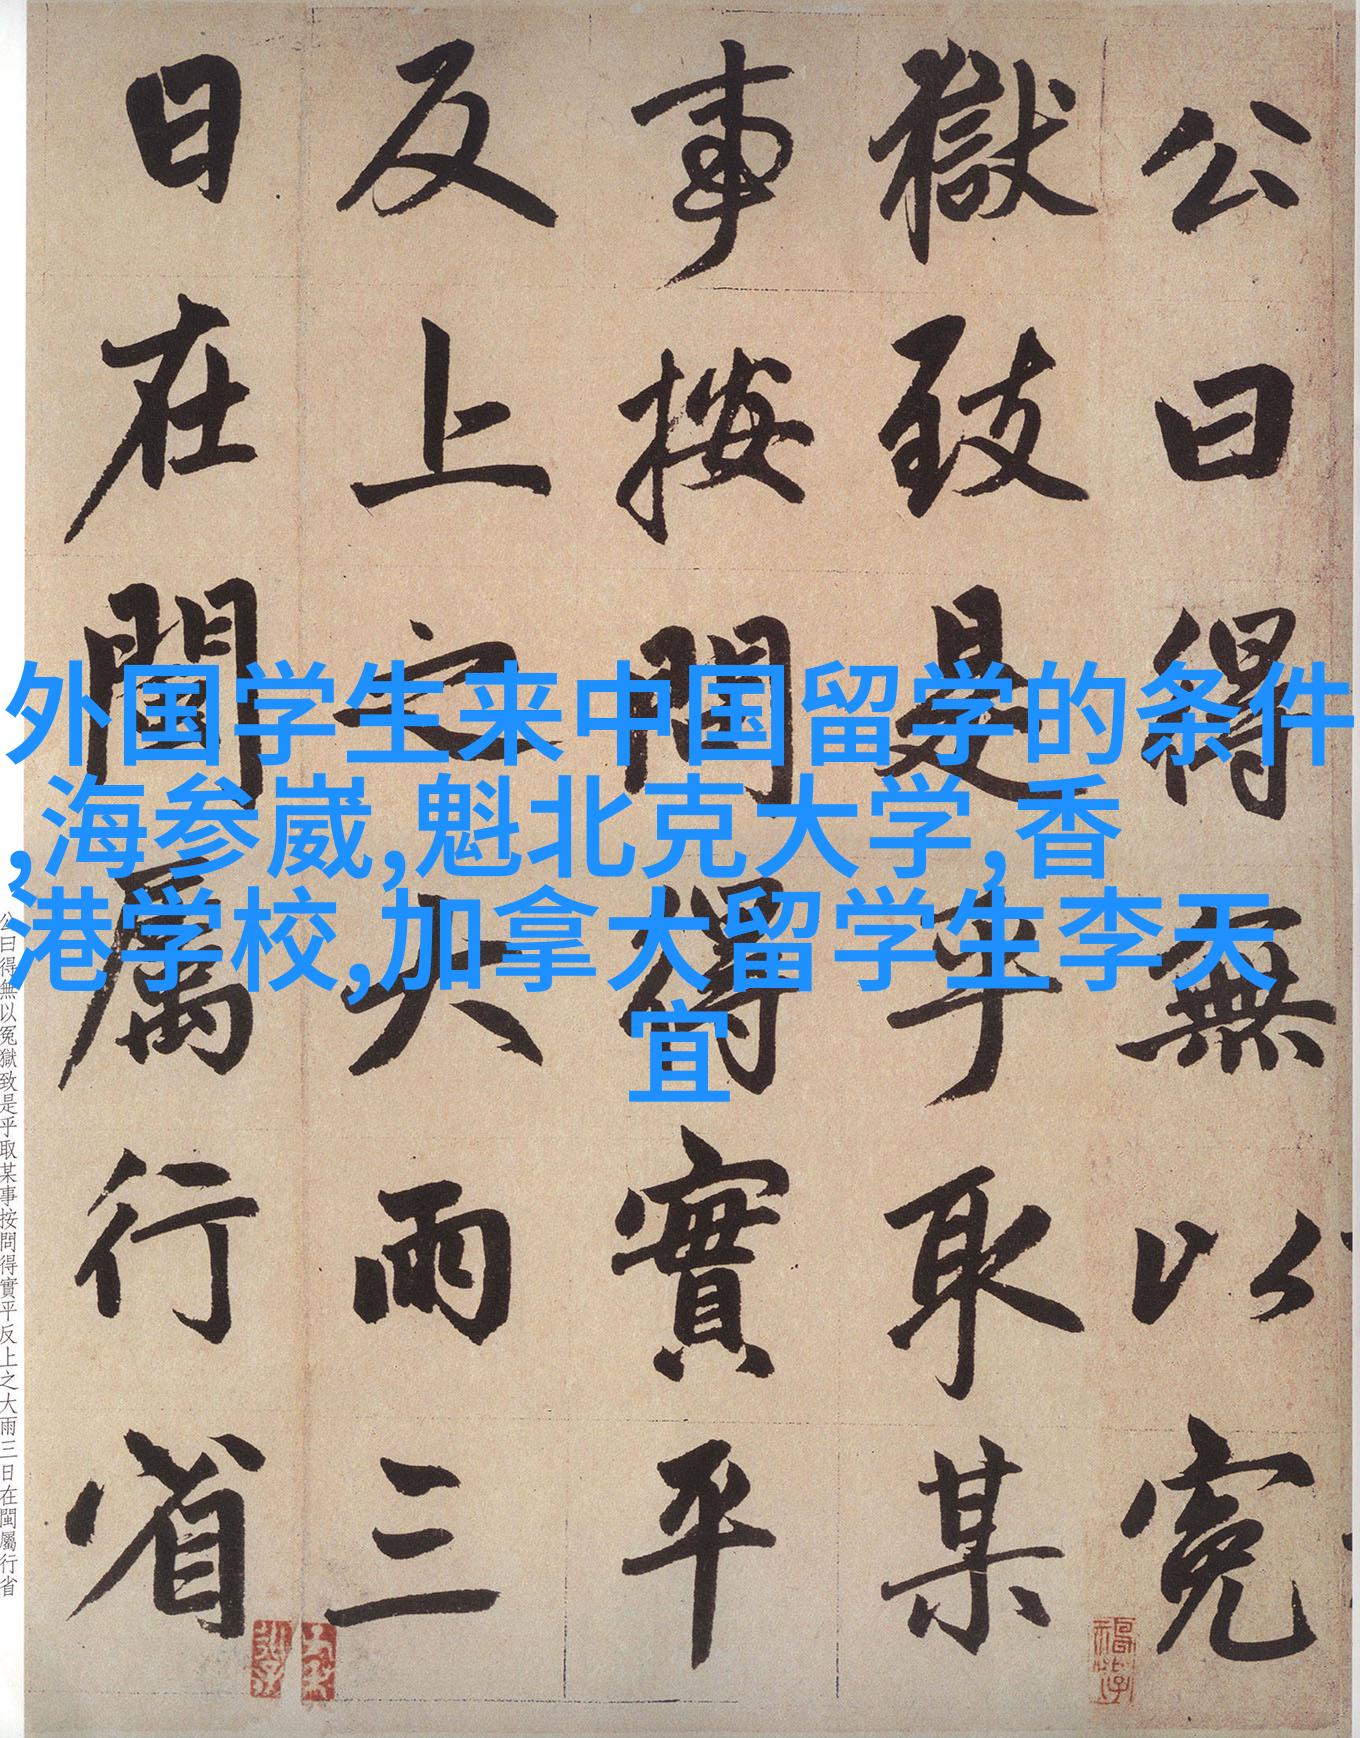 公曰得無以冤
獄致是乎取某
事按問得實平
反上之大雨三
日在閩屬行省
外国学生来中国留学的条件
,海参崴,魁北克大学,香
港学校,加拿大留学生李天
宜
公曰得無以冤獄致是乎取某事按問得實平反上之大雨三日在閩屬行省